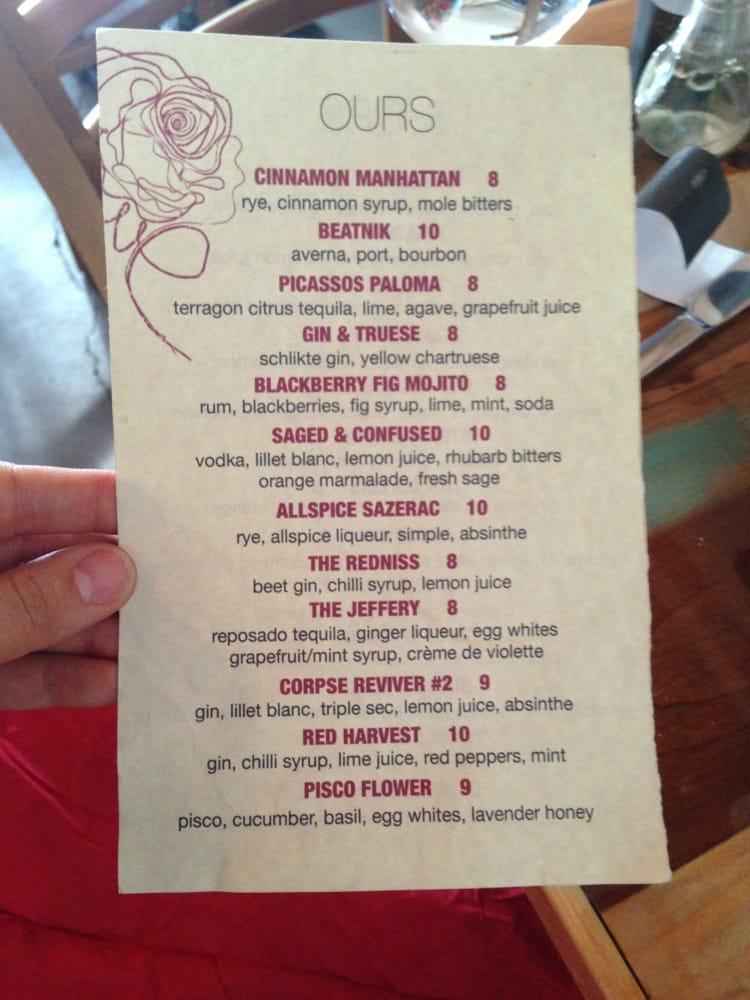 OURS
CINNAMON MANHATTAN 8
rye, cinnamon syrup, mole bitters
BEATNIK 10
averna, port, bourbon
PICASSOS PALOMA 8
terragon citrus tequila, lime, agave, grapefruit juice
GIN & TRUESE 8
schlikte gin, yellow chartruese
BLACKBERRY FIG MOJITO 8
rum, blackberries, fig syrup, lime, mint, soda
SAGED & CONFUSED 10
vodka, lillet blanc, lemon juice, rhubarb bitters
orange marmalade, fresh sage
ALLSPICE SAZERAC 10
rye, allspice liqueur, simple, absinthe
THE REDNISS 8
beet gin, chilli syrup, lemon juice
THE JEFFERY 8
reposado tequila, ginger liqueur, egg whites
grapefruit/mint syrup, crème de violette
CORPSE REVIVER #2 9
gin, lillet blanc, triple sec, lemon juice, absinthe
RED HARVEST 10
gin, chilli syrup, lime juice, red peppers, mint
PISCO FLOWER 9
pisco, cucumber, basil, egg whites, lavender honey